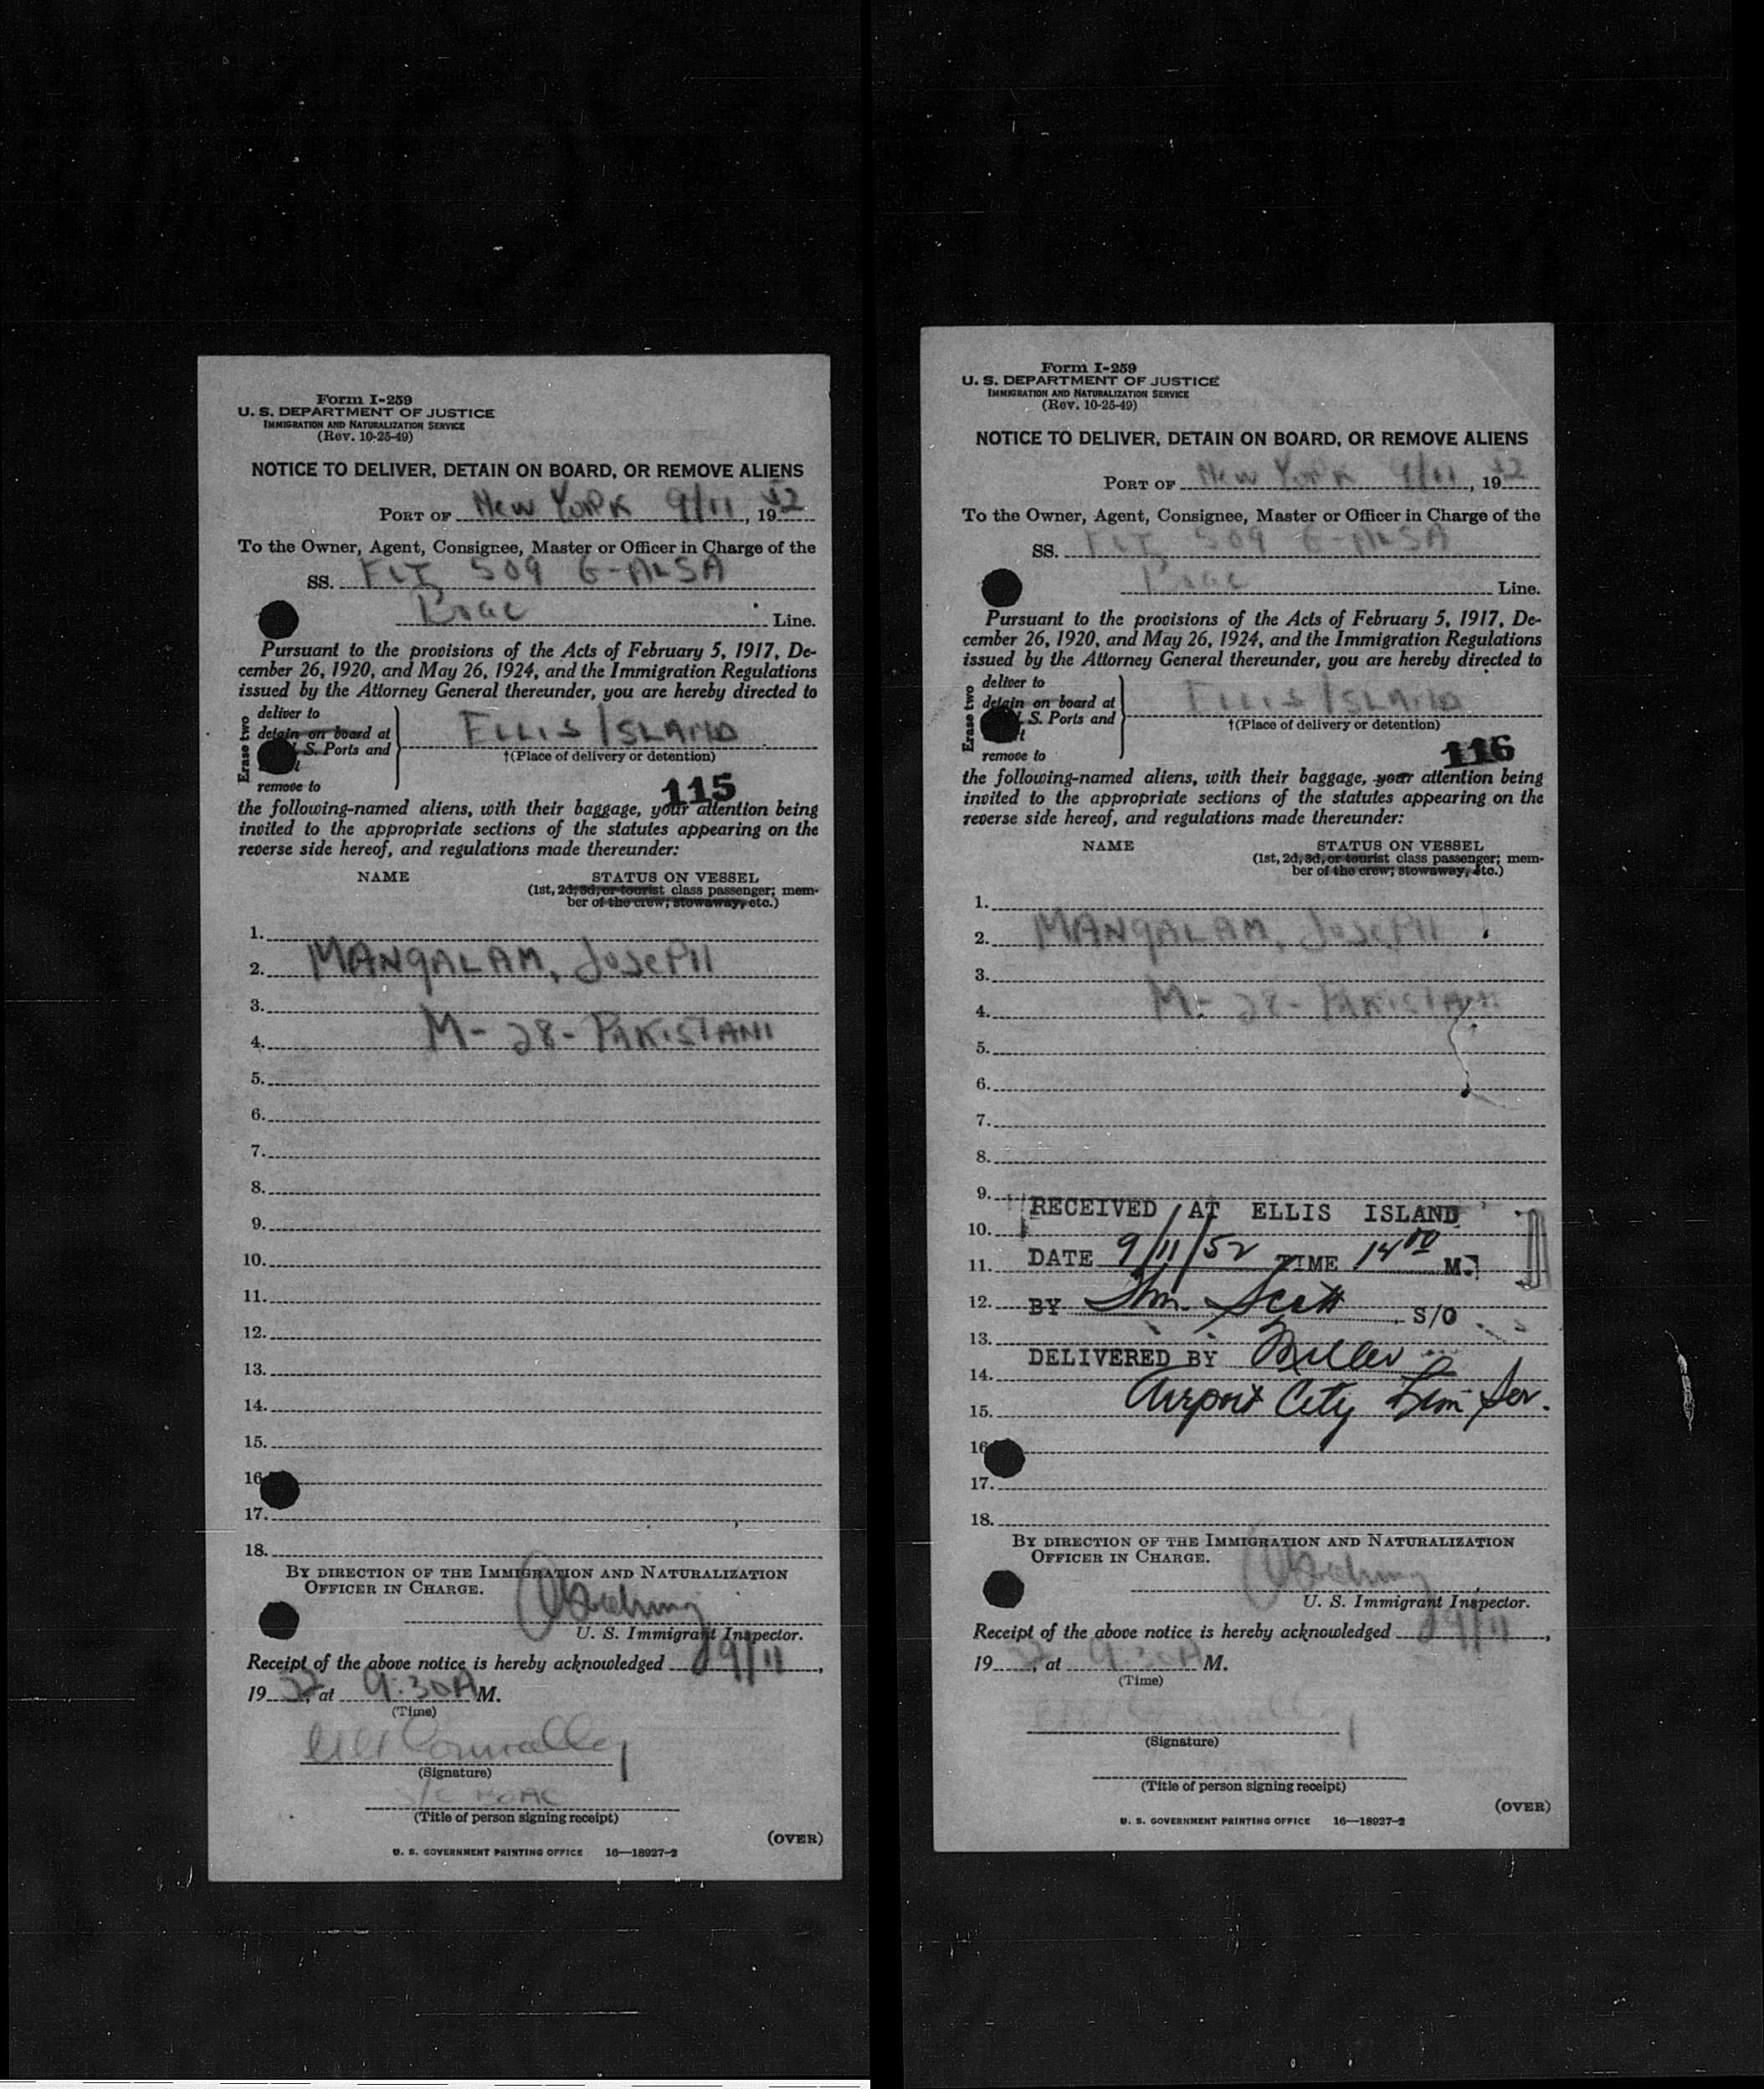 Form I-259
U. S. DEPARTMENT OF JUSTICE
IMMIGRATION AND NATURALIZATION SERVICE
(Rev. 10-25-49)
NOTICE TO DELIVER, DETAIN ON BOARD, OR REMOVE ALIENS
PORT OF New York 9/11, 1952
To the Owner, Agent, Consignee, Master or Officer in Charge of the
SS. FLT 509 G-ALSA
Boac Line.
Pursuant to the provisions of the Acts of February 5, 1917, De-
cember 26, 1920, and May 26, 1924, and the Immigration Regulations
issued by the Attorney General thereunder, you are hereby directed to
Erase two
deliver to
detain on board at
S. Ports and
remove to
ELLIS ISLAND
†(Place of delivery or detention)
115
the following-named aliens, with their baggage, your attention being
invited to the appropriate sections of the statutes appearing on the
reverse side hereof, and regulations made thereunder:
NAME STATUS ON VESSEL
(1st, 2d, 3d, or tourist class passenger; mem-
ber of the crew; stowaway, etc.)
1.
2. MANGALAM, JOSEPH
3.
4. M-28-PAKISTANI
5.
6.
7.
8.
9.
10.
11.
12.
13.
14.
15.
16
17.
18.
BY DIRECTION OF THE IMMIGRATION AND NATURALIZATION
OFFICER IN CHARGE.
U. S. Immigrant Inspector.
Receipt of the above notice is hereby acknowledged 9/11,
1952, at 9:30A M.
(Time)
Connolley
(Signature)
BOAC
(Title of person signing receipt)
(OVER)
U. S. GOVERNMENT PRINTING OFFICE 16—18927-2
Form I-259
U. S. DEPARTMENT OF JUSTICE
IMMIGRATION AND NATURALIZATION SERVICE
(Rev. 10-25-49)
NOTICE TO DELIVER, DETAIN ON BOARD, OR REMOVE ALIENS
PORT OF New York 9/11, 1952
To the Owner, Agent, Consignee, Master or Officer in Charge of the
SS. FLT 509 G-ALSA
Boac Line.
Pursuant to the provisions of the Acts of February 5, 1917, De-
cember 26, 1920, and May 26, 1924, and the Immigration Regulations
issued by the Attorney General thereunder, you are hereby directed to
Erase two
deliver to
detain on board at
S. Ports and
remove to
ELLIS ISLAND
†(Place of delivery or detention)
116
the following-named aliens, with their baggage, your attention being
invited to the appropriate sections of the statutes appearing on the
reverse side hereof, and regulations made thereunder:
NAME STATUS ON VESSEL
(1st, 2d, 3d, or tourist class passenger; mem-
ber of the crew; stowaway, etc.)
1.
2. MANGALAM, JOSEPH
3.
4. M-28-PAKISTANI
5.
6.
7.
8.
9.
RECEIVED AT ELLIS ISLAND
10.
11. DATE 9/11/52 TIME 14 00 M.
12. BY Wm. Scott S/O
13.
DELIVERED BY Miller
14.
15. Airport City Lim Ser.
16
17.
18.
BY DIRECTION OF THE IMMIGRATION AND NATURALIZATION
OFFICER IN CHARGE.
U. S. Immigrant Inspector.
Receipt of the above notice is hereby acknowledged 9/11,
1952, at 9:30A M.
(Time)
(Signature)
(Title of person signing receipt)
(OVER)
U. S. GOVERNMENT PRINTING OFFICE 16—18927-2